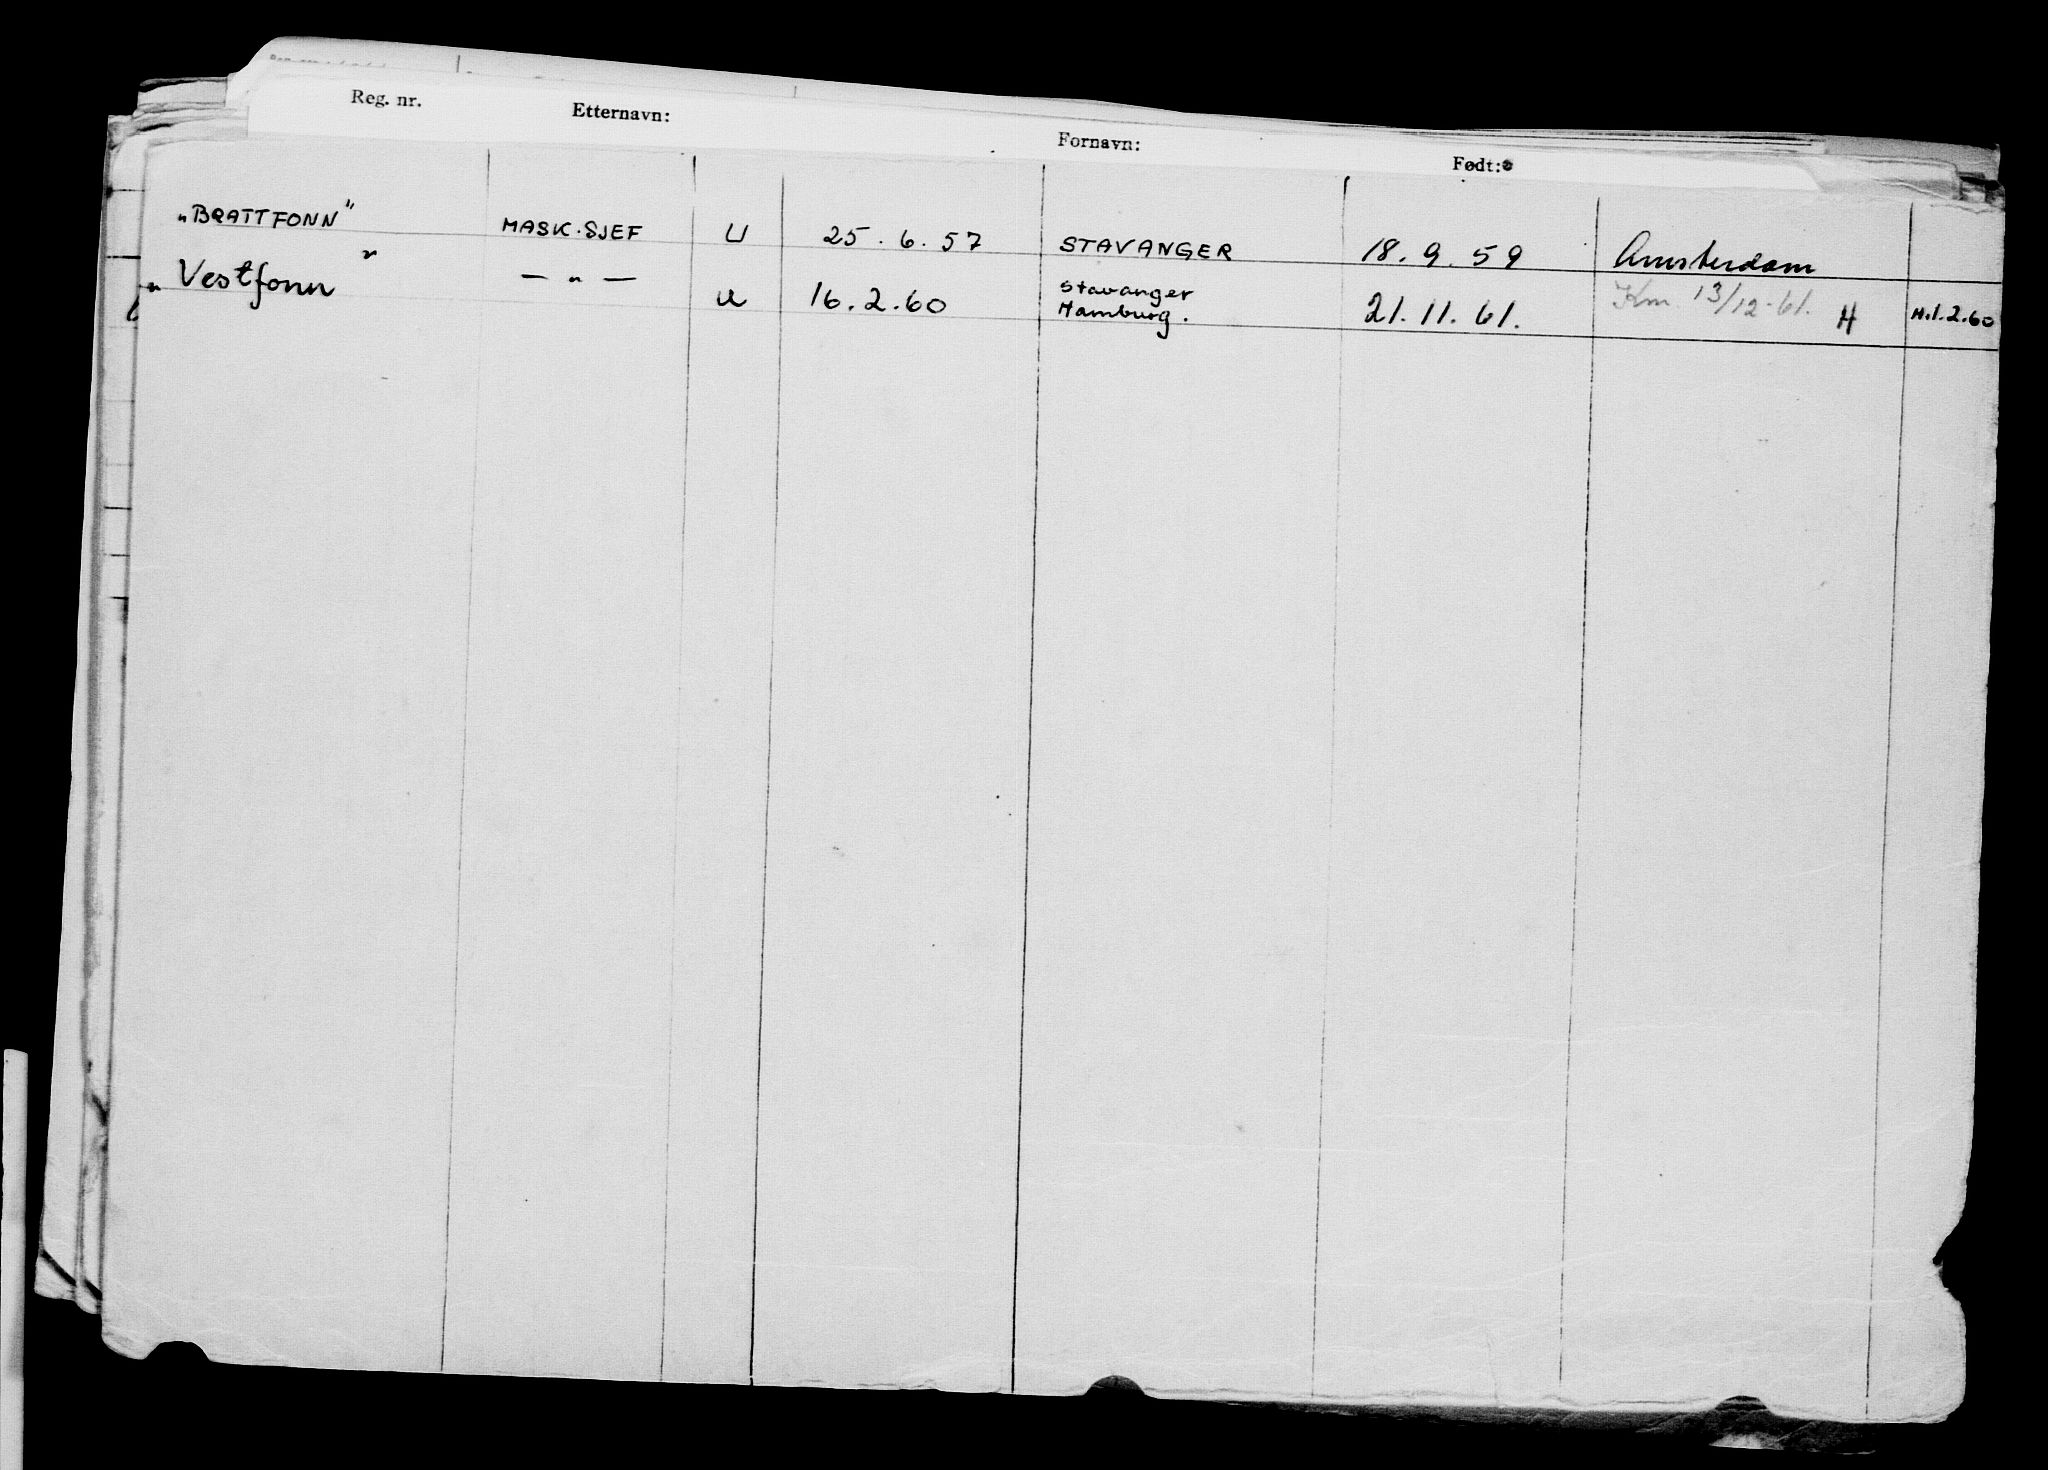 Reg. nr. Etternavn: Fornavn: Født:
"BRATTFONN" MASK.SJEF U 25.6.57 STAVANGER 18.9.59 Amsterdam
"Vestfonn" — " — U 16.2.60 Stavanger Hamburg. 21.11.61. Km. 13/12-61. H H.1.2.60